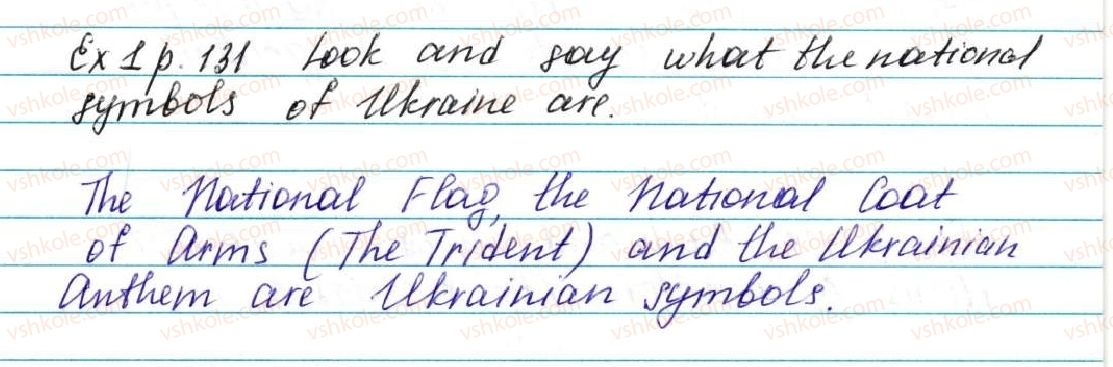 Ex 1 p. 131 Look and say what the national
symbols of Ukraine are.
The National Flag, the National Coat
of Arms (The Trident) and the Ukrainian
Anthem are Ukrainian symbols.